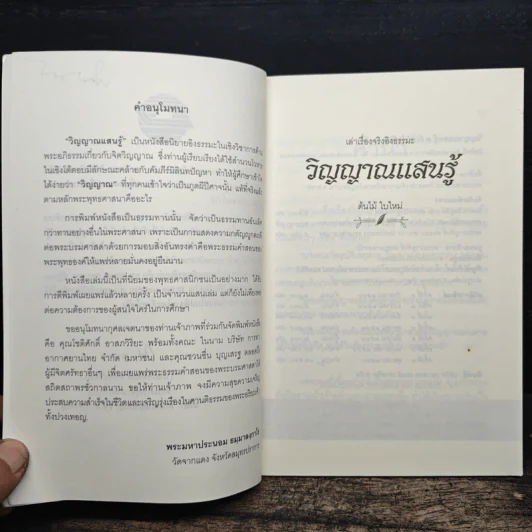 คำอนุโมทนา
"วิญญาณแสนรู้" เป็นหนังสือนิยายอิงธรรมะในเชิงวิชาการด้าน
พระอภิธรรมเกี่ยวกับจิตวิญญาณ ซึ่งท่านผู้เรียบเรียงได้ใช้สำนวนโวหาร
ในเชิงโต้ตอบมีลักษณะคล้ายกับคัมภีร์มิลินทปัญหา ทำให้ผู้ศึกษาเข้าใจ
ได้ง่ายว่า "วิญญาณ" ที่ทุกคนเข้าใจว่าเป็นภูตผีปีศาจนั้น แท้ที่จริงแล้ว
ตามหลักพระพุทธศาสนาคืออะไร
การพิมพ์หนังสือเป็นธรรมทานนั้น จัดว่าเป็นธรรมทานอันเลิศ
กว่าทานอย่างอื่นในพระศาสนา เพราะเป็นการแสดงความกตัญญูกตเวที
ต่อพระบรมศาสดาด้วยการมอบสิ่งอันทรงค่าคือพระธรรมคำสอนของ
พระพุทธองค์ให้แพร่หลายมั่นคงอยู่ยืนนาน
หนังสือเล่มนี้เป็นที่นิยมของพุทธศาสนิกชนเป็นอย่างมาก ได้มี
การตีพิมพ์เผยแพร่แล้วหลายครั้ง เป็นจำนวนแสนเล่ม แต่ก็ยังไม่เพียงพอ
ต่อความต้องการของผู้สนใจใคร่ในการศึกษา
ขออนุโมทนากุศลเจตนาของท่านเจ้าภาพที่ร่วมกันจัดพิมพ์หนังสือ
คือ คุณโชติศักดิ์ อาสภวิริยะ พร้อมทั้งคณะ ในนาม บริษัท การท่า
อากาศยานไทย จำกัด (มหาชน) และคุณชวนชื่น บุญเสรฐ ตลอดถึง
ผู้มีจิตศรัทธาอื่นๆ เพื่อเผยแพร่พระธรรมคำสอนของพระบรมศาสดาให้
สถิตสถาพรชั่วกาลนาน ขอให้ท่านเจ้าภาพ จงมีความสุขความเจริญ
ประสบความสำเร็จในชีวิตและเจริญรุ่งเรืองในศาสนธรรมของพระอริยเจ้า
ทั้งปวงเทอญ.
พระมหาประนอม ธมฺมาลงฺกาโร
วัดจากแดง จังหวัดสมุทรปราการ
เล่าเรื่องจริงอิงธรรมะ
วิญญาณแสนรู้
ต้นไม้ ใบใหม่